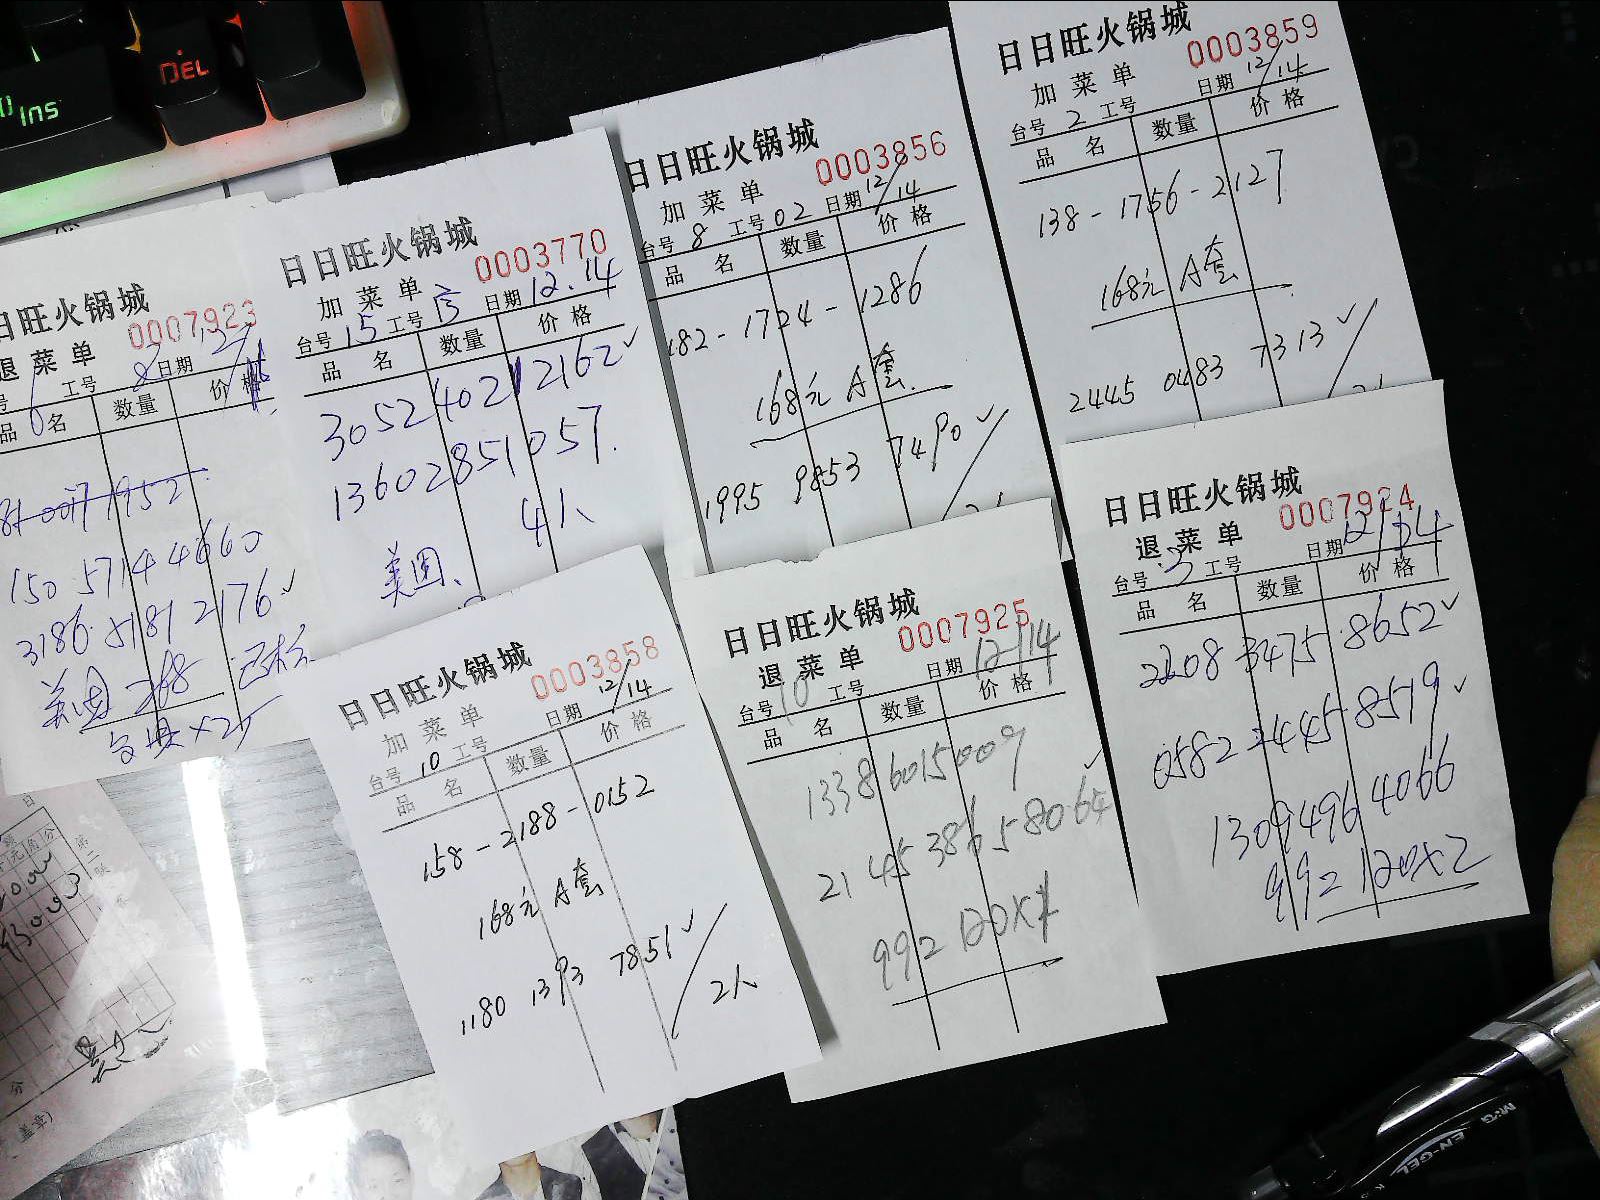 DEL
Ins
日日旺火锅城
0007923
退菜单
工号 8 日期
品名 数量 价格
150 5714 4660
3186 5181 2176 ✓
美团 268
日日旺火锅城
0003770
加菜单
台号 15 工号 日期 12.14
品名 数量 价格
3052 4021 2162 ✓
13602851057
4人
美团
日日旺火锅城
0003856
加菜单
台号 8 工号 02 日期 12/14
品名 数量 价格
182-1724-1286
168元 A套
1995 9853 7490 ✓
日日旺火锅城
0003859
加菜单
台号 2 工号 日期 12/14
品名 数量 价格
138-1756-2127
168元 A套
2445 0483 7313 ✓
日日旺火锅城
0003858
加菜单
台号 10 工号 日期 12/14
品名 数量 价格
158-2188-0152
168元 A套
1180 1393 7851 ✓
2人
日日旺火锅城
0007925
退菜单
台号 10 工号 日期 12.14
品名 数量 价格
13386015009
2145 3865 8064 ✓
992 120×1
日日旺火锅城
0007924
退菜单
台号 3 工号 日期
品名 数量 价格
2208 3475 8652 ✓
0582 2445 8519 ✓
13094964066
992 120×2
M&G
EN-GEL